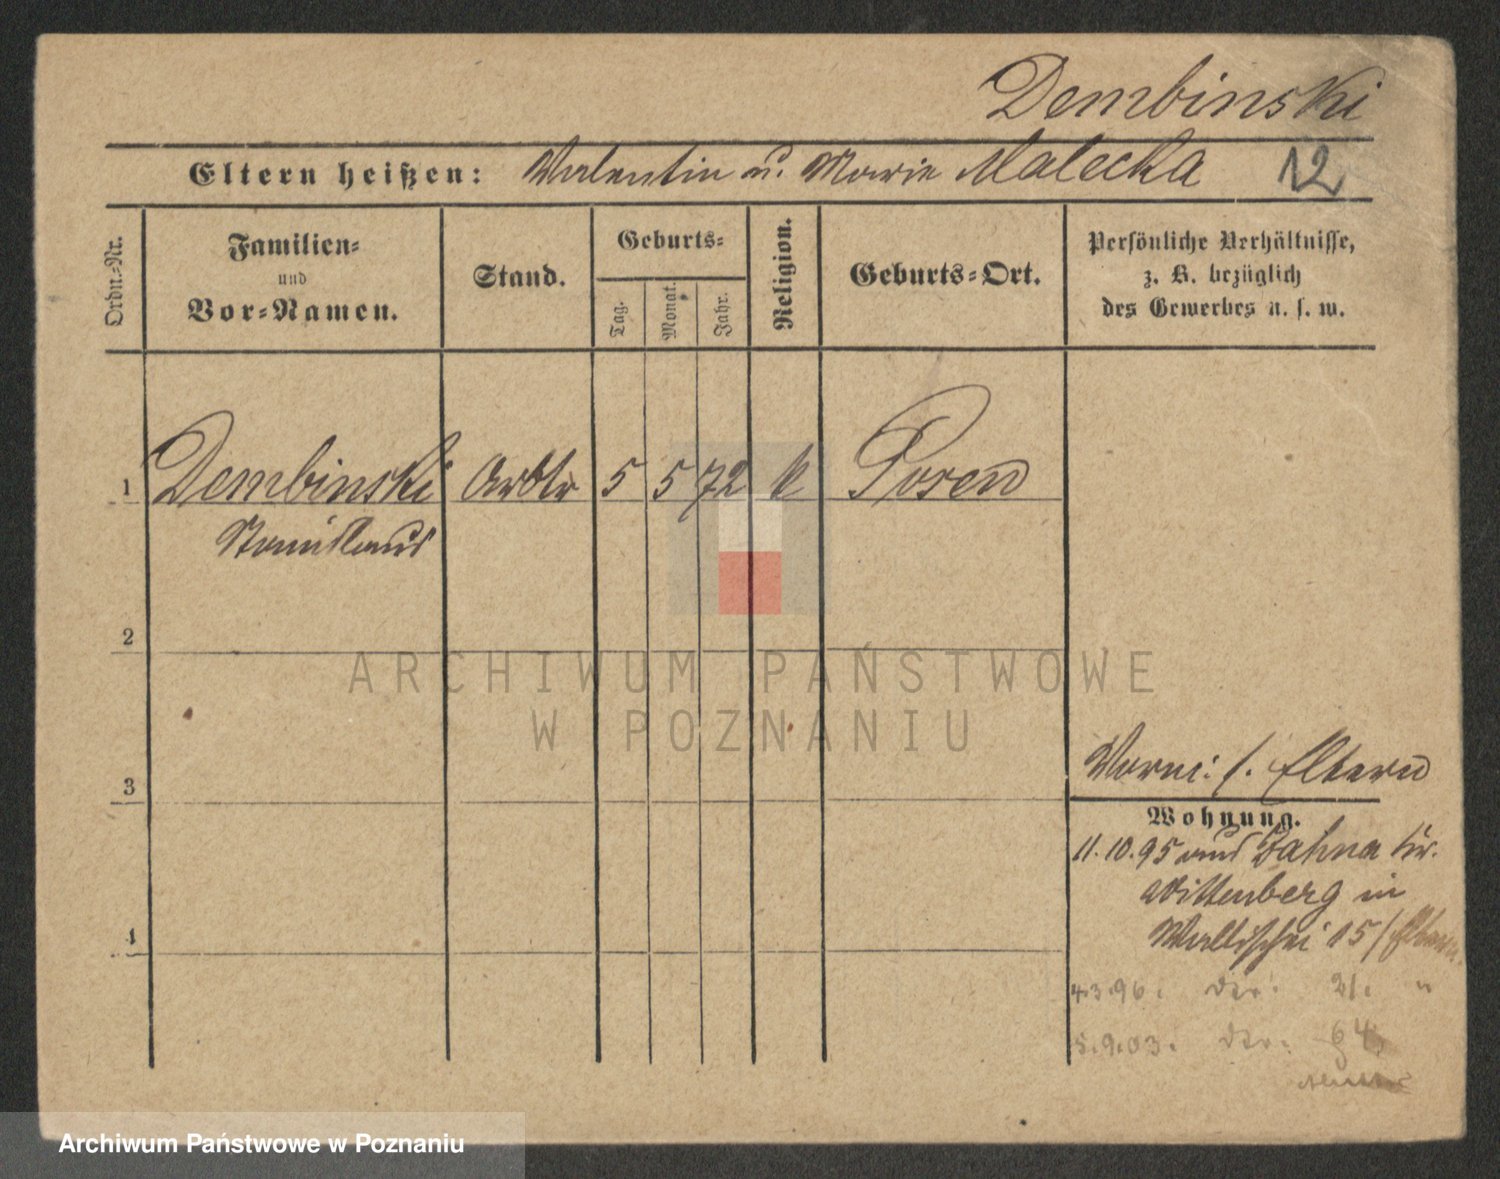 Dembinski
Eltern heißen: Valentin u. Marie Malecka 12
Ordn.-Nr.
Familien-
und
Vor-Namen.
Stand.
Geburts-
Tag.
Monat.
Jahr.
Religion.
Geburts-Ort.
Persönliche Verhältnisse,
z. B. bezüglich
des Gewerbes u. s. w.
1 Dembinski Arbtr 5 5 72 k Posen
Stanislaus
2
3
4
Vorne: s. Eltern
Wohnung.
11.10.95 aus Zahna kr.
Wittenberg in
Wallischei 15/ Eltern
4.3.96. der: 21. "
5.9.03. der: 64
ARCHIWUM PAŃSTWOWE
W POZNANIU
Archiwum Państwowe w Poznaniu